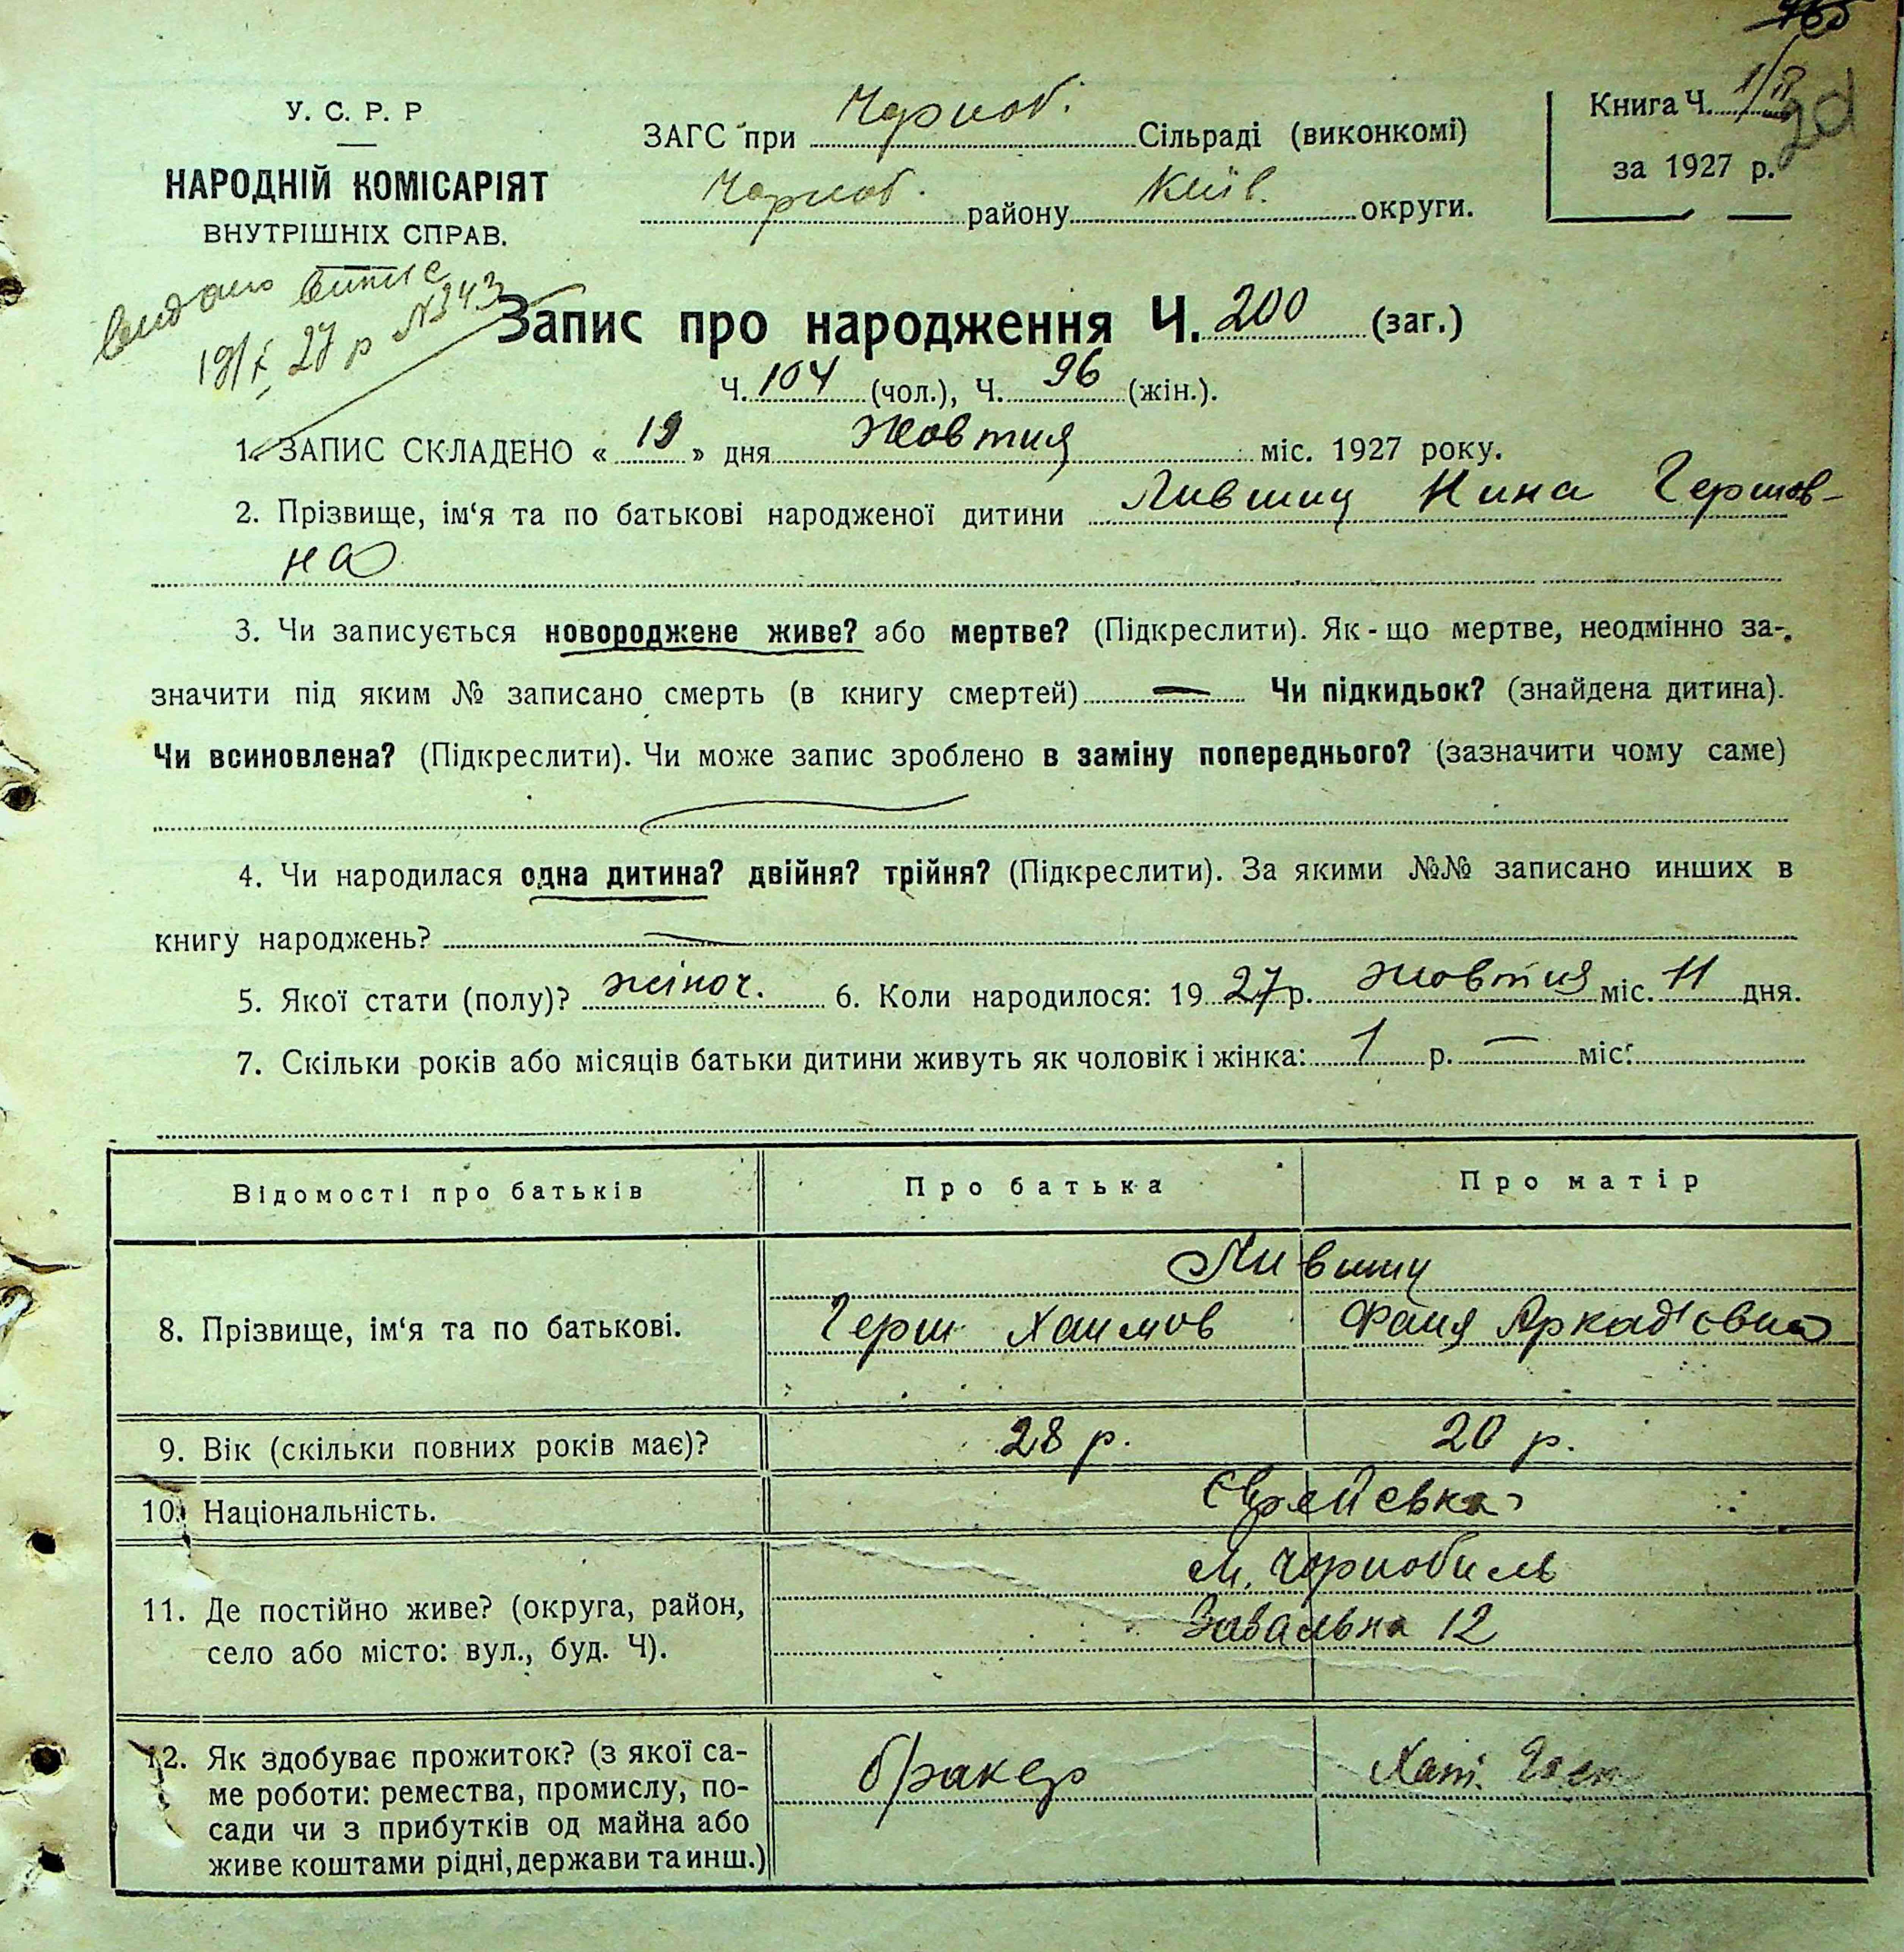 У. С. Р. Р
НАРОДНІЙ КОМІСАРІЯТ
ВНУТРІШНІХ СПРАВ.
ЗАГС при Чорноб. Сільраді (виконкомі)
Чорноб. району Київ. округи.
Книга Ч.
за 1927 р.
видано випис
19/X 27 р №243
Запис про народження Ч. 200 (заг.)
Ч. 104 (чол.), Ч. 96 (жін.).
1. ЗАПИС СКЛАДЕНО « 19 » дня Жовтня міс. 1927 року.
2. Прізвище, ім‘я та по батькові народженої дитини Лившиц Нина Гершов-
на
3. Чи записується новороджене живе? або мертве? (Підкреслити). Як-що мертве, неодмінно за-
значити під яким № записано смерть (в книгу смертей) — Чи підкидьок? (знайдена дитина).
Чи всиновлена? (Підкреслити). Чи може запис зроблено в заміну попереднього? (зазначити чому саме)
4. Чи народилася одна дитина? двійня? трійня? (Підкреслити). За якими №№ записано инших в
книгу народжень? —
5. Якої стати (полу)? жіноч. 6. Коли народилося: 19 27 р. жовтня міс. 11 дня.
7. Скільки років або місяців батьки дитини живуть як чоловік і жінка: 1 р. — міс.
Відомості про батьків Про батька Про матір
Лившиц
8. Прізвище, ім‘я та по батькові. Герш Хаимов Фаня Аркад'євна
9. Вік (скільки повних років має)? 28 р. 20 р.
10. Національність. Єврейська
м. Чорнобиль
11. Де постійно живе? (округа, район,
село або місто: вул., буд. Ч). Завальна 12
12. Як здобуває прожиток? (з якої са-
ме роботи: ремества, промислу, по-
сади чи з прибутків од майна або
живе коштами рідні, держави та инш.)
бракер Хатн.